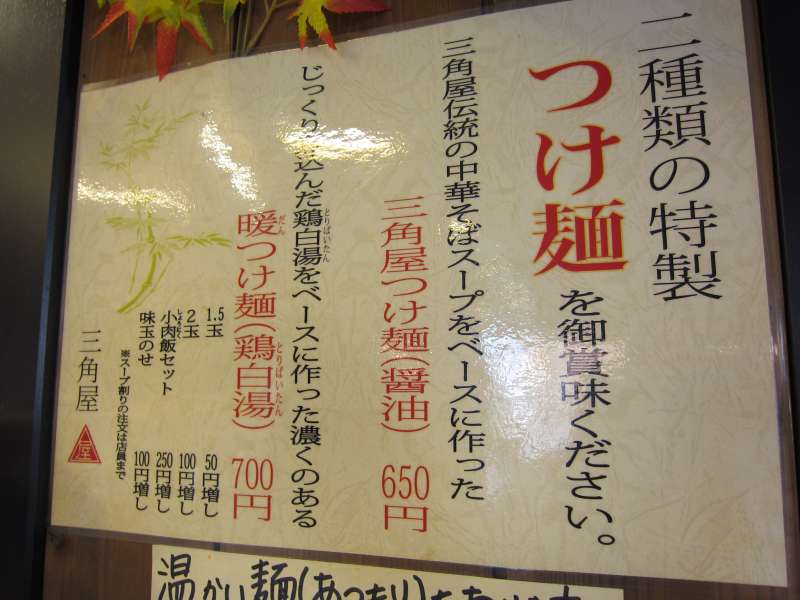 二種類の特製
つけ麺を御賞味ください。
三角屋伝統の中華そばスープをベースに作った
三角屋つけ麺(醤油) 650円
じっくり込んだ鶏白湯をベースに作った濃くのある
とりぱいたん
暖つけ麺(鶏白湯) 700円
だん とりぱいたん
1.5玉 50円増し
2玉 100円増し
小肉飯セット 250円増し
味玉のせ 100円増し
※スープ割りの注文は店員まで
三角屋
屋
温かい麺(あつもり)も